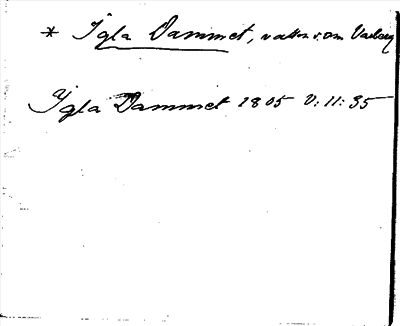 * Igla Dammet, vatten s. om Varberg
Igla Dammet 1805 V: 11: 35